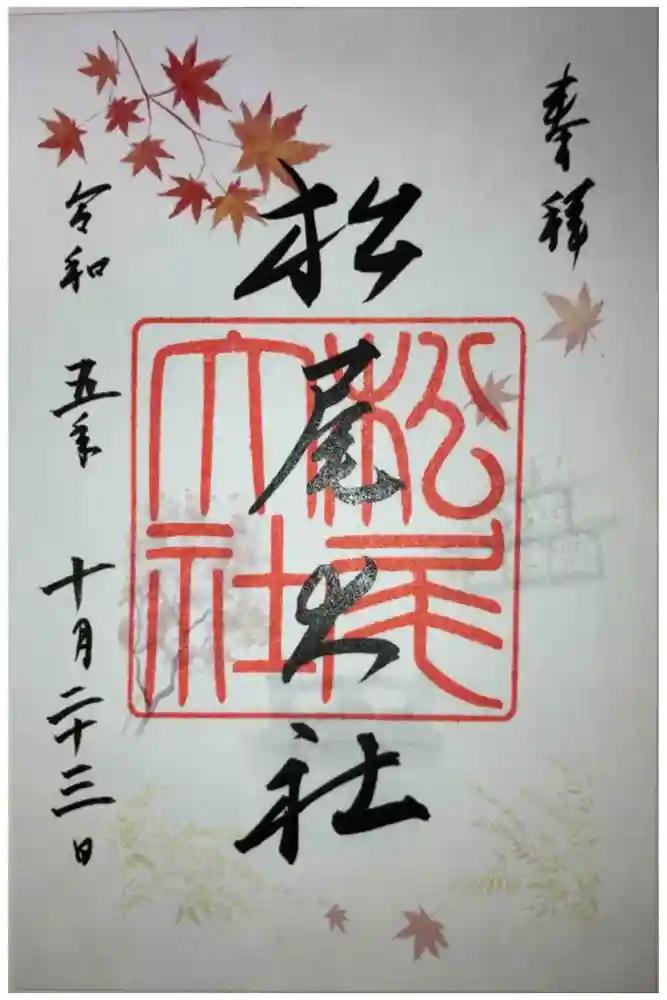 奉拝
松尾大社
松尾大社
令和 五年 十月二十三日